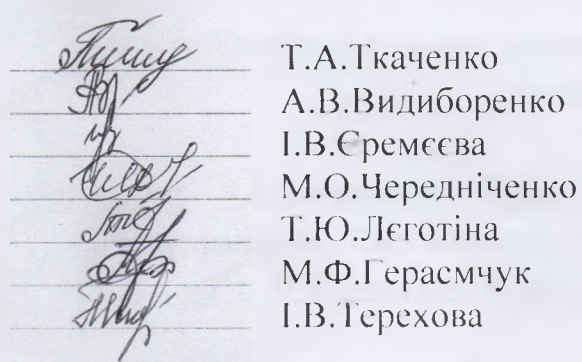 Т.А.Ткаченко
А.В.Видиборенко
І.В.Єремєєва
М.О.Чередніченко
Т.Ю.Лєготіна
М.Ф.Герасмчук
І.В.Терехова